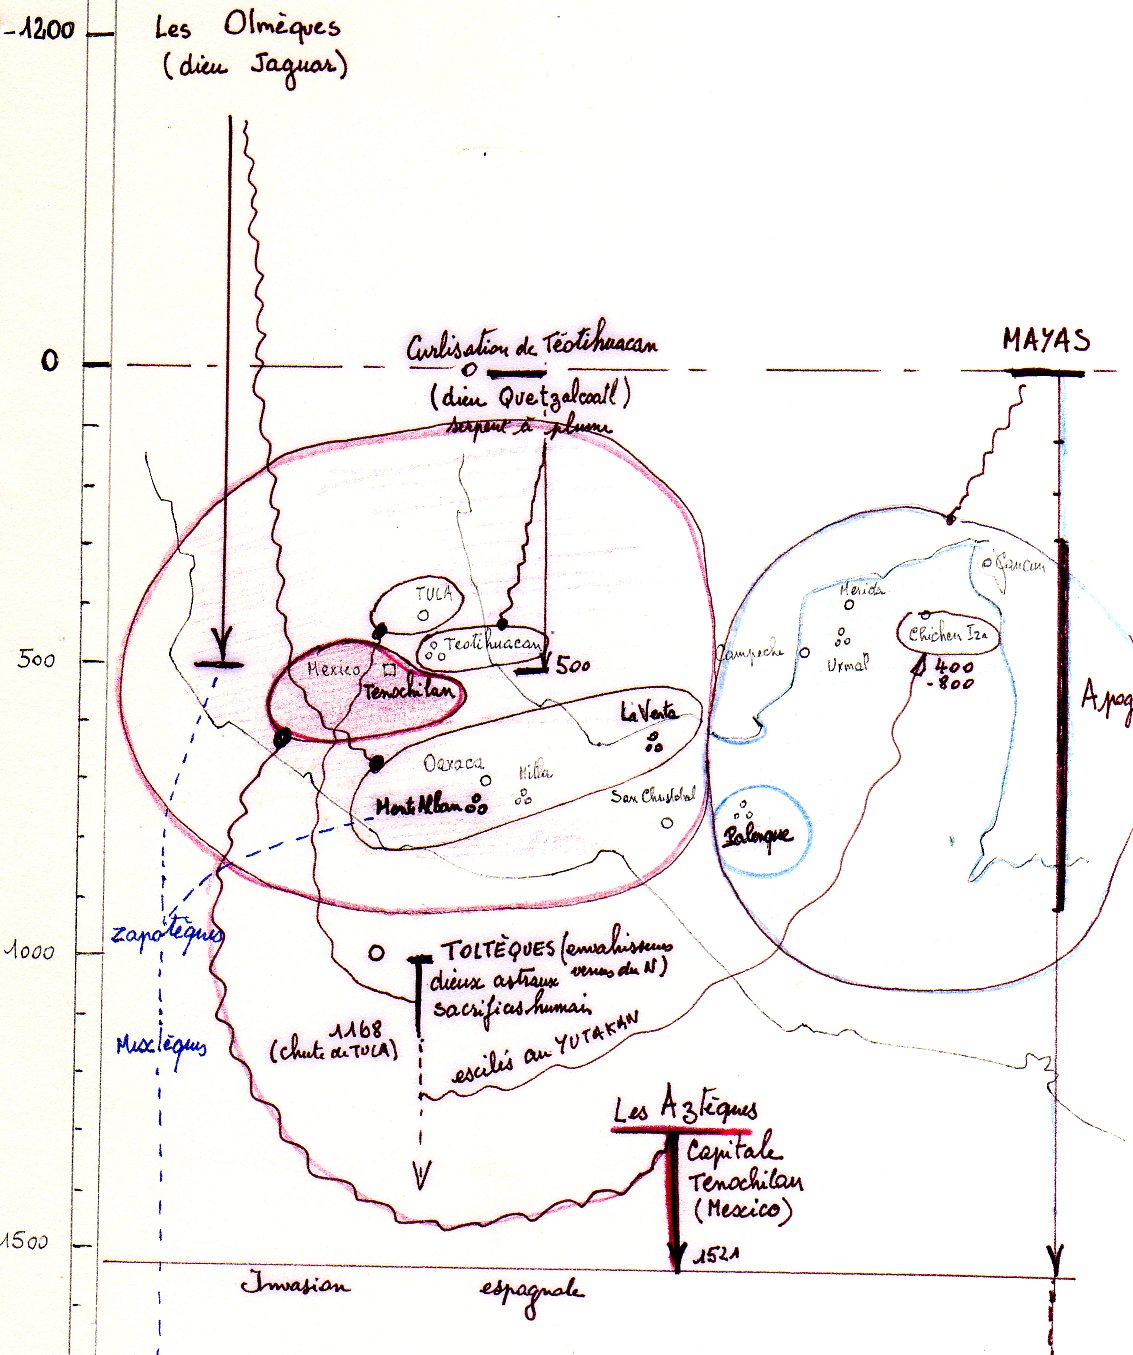 -1200
Les Olmèques
(dieu Jaguar)
0
Civilisation de Téotihuacan
(dieu Quetzalcoatl)
serpent à plume
MAYAS
Cancun
Merida
TULA
Chichen Iza
Teotihuacan
Campeche
Uxmal
500
500
400
-800
Mexico
Tenochilan
Apog
La Venta
Oaxaca
Milla
Monte Alban
San Christobal
Palenque
Zapotèques
1000
TOLTÈQUES (envahisseurs
venus du N)
dieux astraux
sacrifices humain
1168
(chute de TULA)
Mixtèques
escilés au YUTAKAN
Les Aztèques
Capitale
Tenochilan
(Mexico)
1500
1521
Invasion espagnole